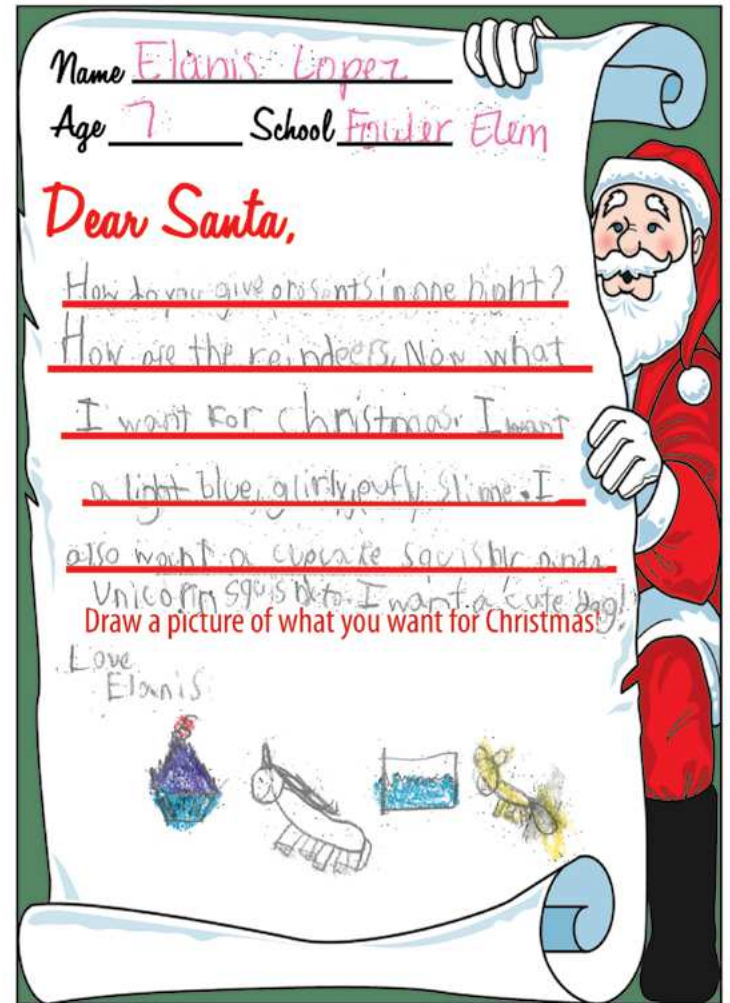 Name Elanis Lopez
Age 7 School Fowler Elem
Dear Santa,
How do you give presents in one night?
How are the reindeers, Now what
I want For christmas. I want
a light blue, glirly, pufly slime. I
also want a cupcake squishy and a
Unicorn squish to. I want a cute dog!
Draw a picture of what you want for Christmas!
Love
Elanis